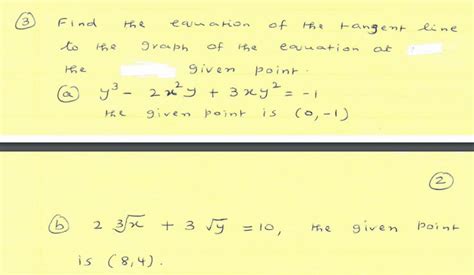 ③ Find the equation of the tangent line
to the graph of the equation at
the given point.
ⓐ y³ - 2x²y + 3xy² = -1
the given point is (0, -1)
②
ⓑ 2 ∛x + 3 √y = 10, the given point
is (8,4).